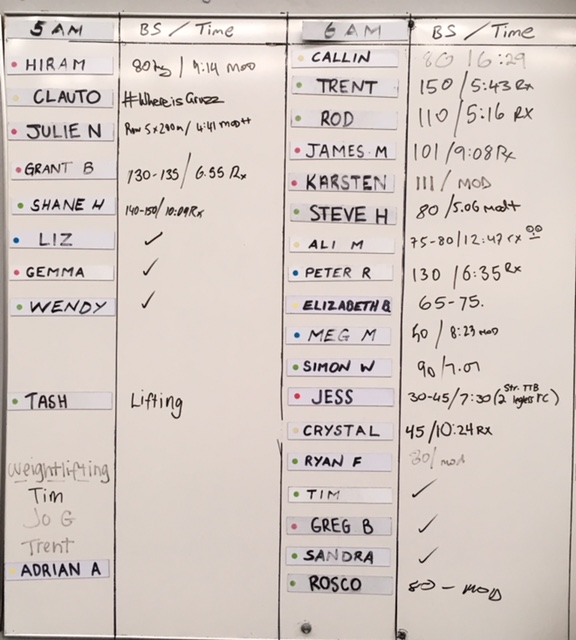 5 AM BS / Time
HIRAM 80kg / 9:14 mod
CLAUTO #WhereisGruzz
JULIE N Row 5x200m / 4:41 mod++
GRANT B 130-135 / 6.55 Rx
SHANE H 140-150 / 10:09 Rx
LIZ ✓
GEMMA ✓
WENDY ✓
TASH Lifting
weightlifting
Tim
Jo G
Trent
ADRIAN A
6 AM BS / Time
CALLIN 80 / 6:29
TRENT 150 / 5:43 Rx
ROD 110 / 5:16 Rx
JAMES M 101 / 9:08 Rx
KARSTEN 111 / MOD
STEVE H 80 / 5.06 mod+
ALI M 75-80 / 12:47 rx
PETER R 130 / 6:35 Rx
ELIZABETH B 65-75.
MEG M 50 / 8:23 mod
SIMON W 90 / 7.01
JESS 30-45 / 7:30 (2 legless RC) Str. TTB
CRYSTAL 45 / 10:24 RX
RYAN F 80 / mod
TIM ✓
GREG B ✓
SANDRA ✓
ROSCO 80 - MOD